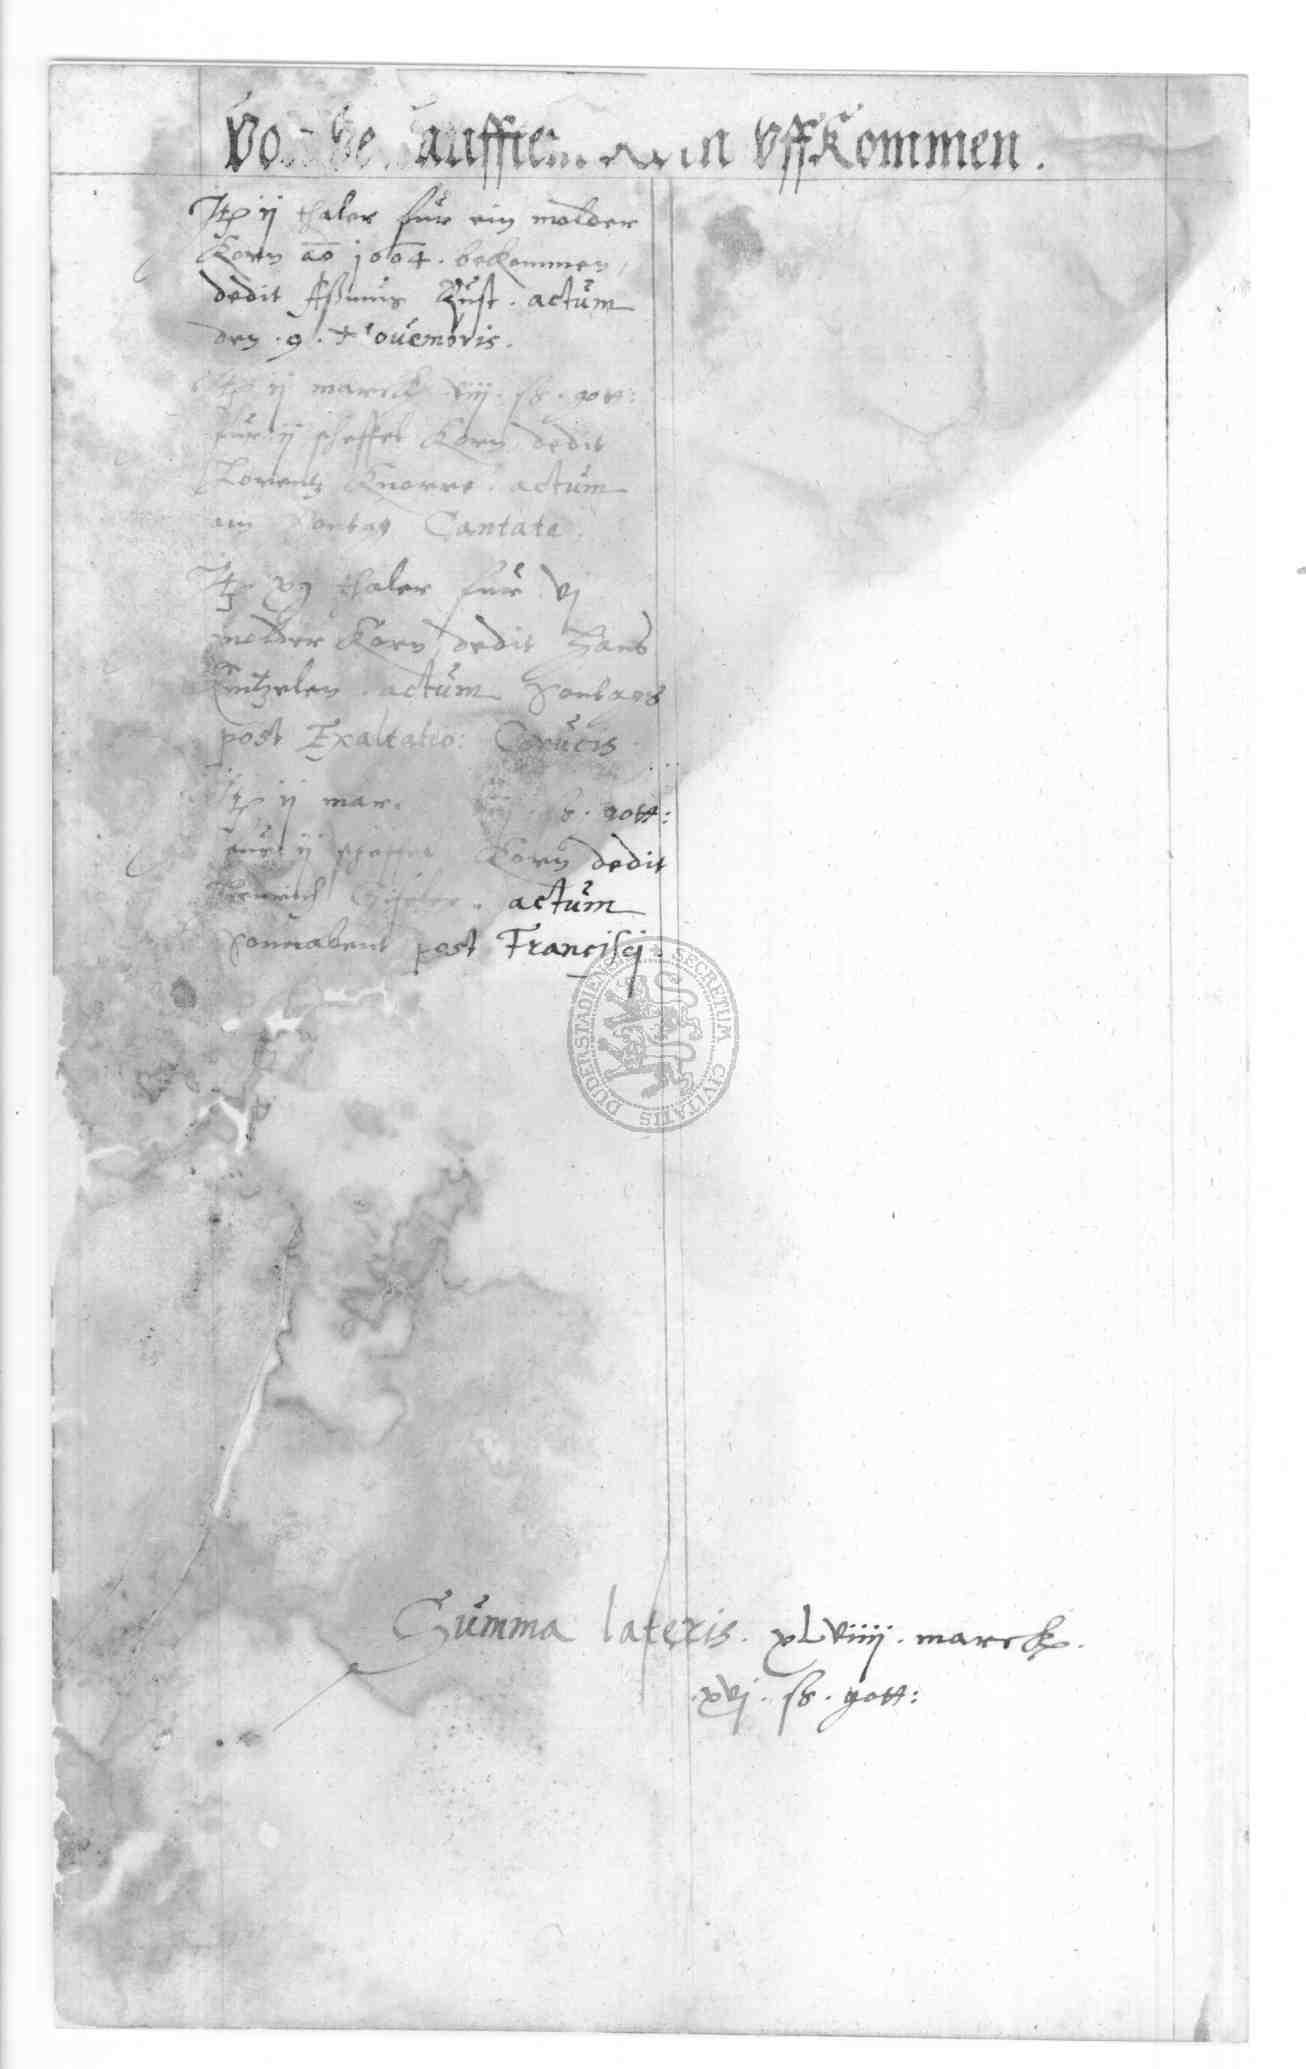 Vffkommen.
Itp ij thaler für ein molder
Korn ao 1604. bekommen,
dedit Aßmus Rust. actum
den .9. Nouembris.
Itp ij marck viij. ß. gott:
für ij scheffel Korn dedit
Lorentz Knorre. actum
am Contag Cantate.
Itp xv thaler für vj
molder Korn dedit Hans
actum Sontags
post Exaltatio: Crucis
Itp ij mar. ß. gott:
für ij scheffel Korn dedit
actum
Sonnabent post Francisci.
SECRETUM CIVITATIS DUDERSTADIENSIS
Summa lateris. xLviiij. marck.
.xvj. ß. gott: